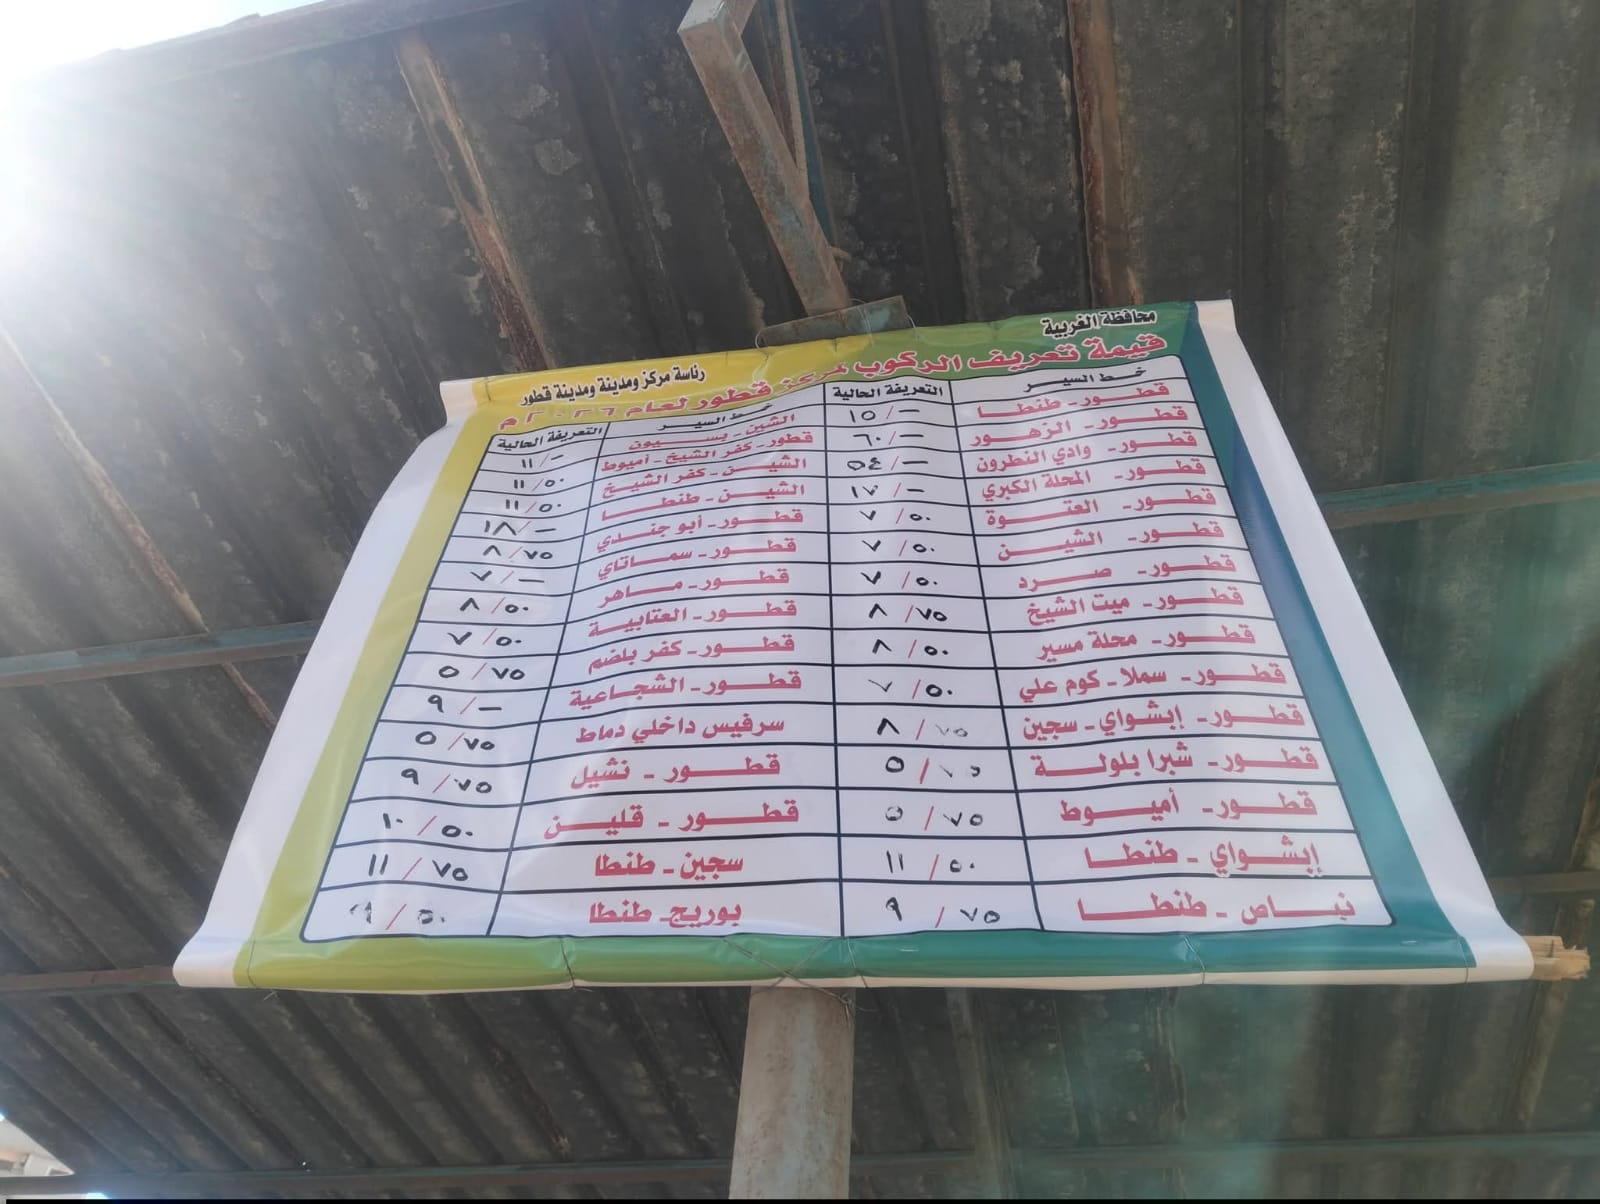 محافظة الغربية
رئاسة مركز ومدينة ومدينة قطور
قيمة تعريف الركوب لمركز قطور لعام ٢٠٢٦ م
خط السير التعريفة الحالية
قطور - طنطا ١٥/-
قطور - الزهور ٦٠/-
قطور - وادي النطرون ٥٤/-
قطور - المحلة الكبري ١٧/-
قطور - العتوة ٧/٥٠
قطور - الشين ٧/٥٠
قطور - صرد ٧/٥٠
قطور - ميت الشيخ ٨/٧٥
قطور - محلة مسير ٨/٥٠
قطور - سملا - كوم علي ٧/٥٠
قطور - إبشواي - سجين ٨/٧٥
قطور - شبرا بلولة ٥/٧٥
قطور - أميوط ٥/٧٥
إبشواي - طنطا ١١/٥٠
نباص - طنطا ٩/٧٥
خط السير التعريفة الحالية
الشين - بسيون ١١/-
قطور - كفر الشيخ - أميوط ١١/٥٠
الشين - كفر الشيخ ١١/٥٠
الشين - طنطا ١٨/-
قطور - أبو جندي ٨/٧٥
قطور - سماتاي ٧/-
قطور - ماهر ٨/٥٠
قطور - العتابية ٧/٥٠
قطور - كفر بلضم ٥/٧٥
قطور - الشجاعية ٩/-
سرفيس داخلي دماط ٥/٧٥
قطور - نشيل ٩/٧٥
قطور - قلين ١٠/٥٠
سجين - طنطا ١١/٧٥
بوريج - طنطا